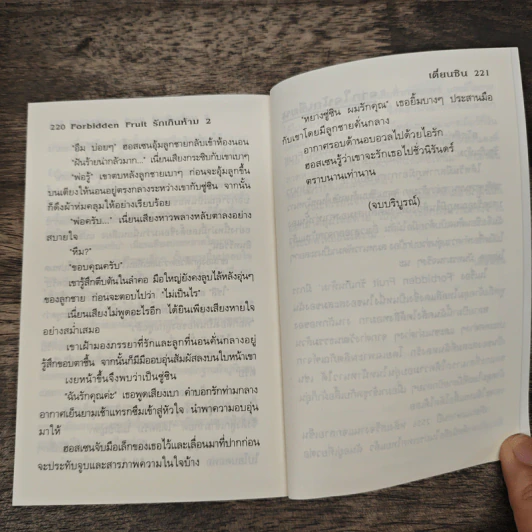 220 Forbidden Fruit รักเกินห้าม 2
"อืม บ่อยๆ" ฮอสเซนอุ้มลูกชายกลับเข้าห้องนอน
"มันร้ายน่ากลัวมาก..." เนี่ยนเสียงกระซิบกับเขาเบาๆ
"พ่อรู้" เขาตบหลังลูกชายเบาๆ ก่อนจะอุ้มลูกขึ้น
บนเตียงให้นอนอยู่ตรงกลางระหว่างเขากับซูซิน จากนั้น
ก็ดึงผ้าห่มคลุมให้อย่างเรียบร้อย
"พ่อครับ..." เนี่ยนเสียงหาวพลางหลับตาลงอย่าง
สบายใจ
"หืม?"
"ขอบคุณครับ"
เขารู้สึกตีบตันในลำคอ มือใหญ่ยังคงลูบไล้หลังอุ่นๆ
ของลูกชาย ก่อนจะตอบไปว่า "ไม่เป็นไร"
เนี่ยนเสียงไม่พูดอะไรอีก ได้ยินเพียงเสียงหายใจ
อย่างสม่ำเสมอ
เขาเฝ้ามองภรรยาที่รักและลูกที่นอนตันกลางอยู่
รู้สึกขอบตาชื้น จากนั้นก็มีมืออบอุ่นสัมผัสลงบนใบหน้าเขา
เงยหน้าขึ้นจึงพบว่าเป็นซูซิน
"ฉันรักคุณค่ะ" เธอพูดเสียงเบา คำบอกรักท่ามกลาง
อากาศเย็นยามเช้าแทรกซึมเข้าสู่หัวใจ นำพาความอบอุ่น
มาให้
ฮอสเซนจับมือเล็กของเธอไว้และเลื่อนมาที่ปากก่อน
จะประทับจูบและสารภาพความในใจบ้าง
เตี่ยนซิน 221
"หยางซูซิน ผมรักคุณ" เธอยิ้มบางๆ ประสานมือ
กับเขาโดยมีลูกชายคั่นกลาง
อากาศรอบด้านอบอวลไปด้วยไอรัก
ฮอสเซนรู้ว่าเขาจะรักเธอไปชั่วนิรันดร์
ตราบนานเท่านาน
(จบบริบูรณ์)